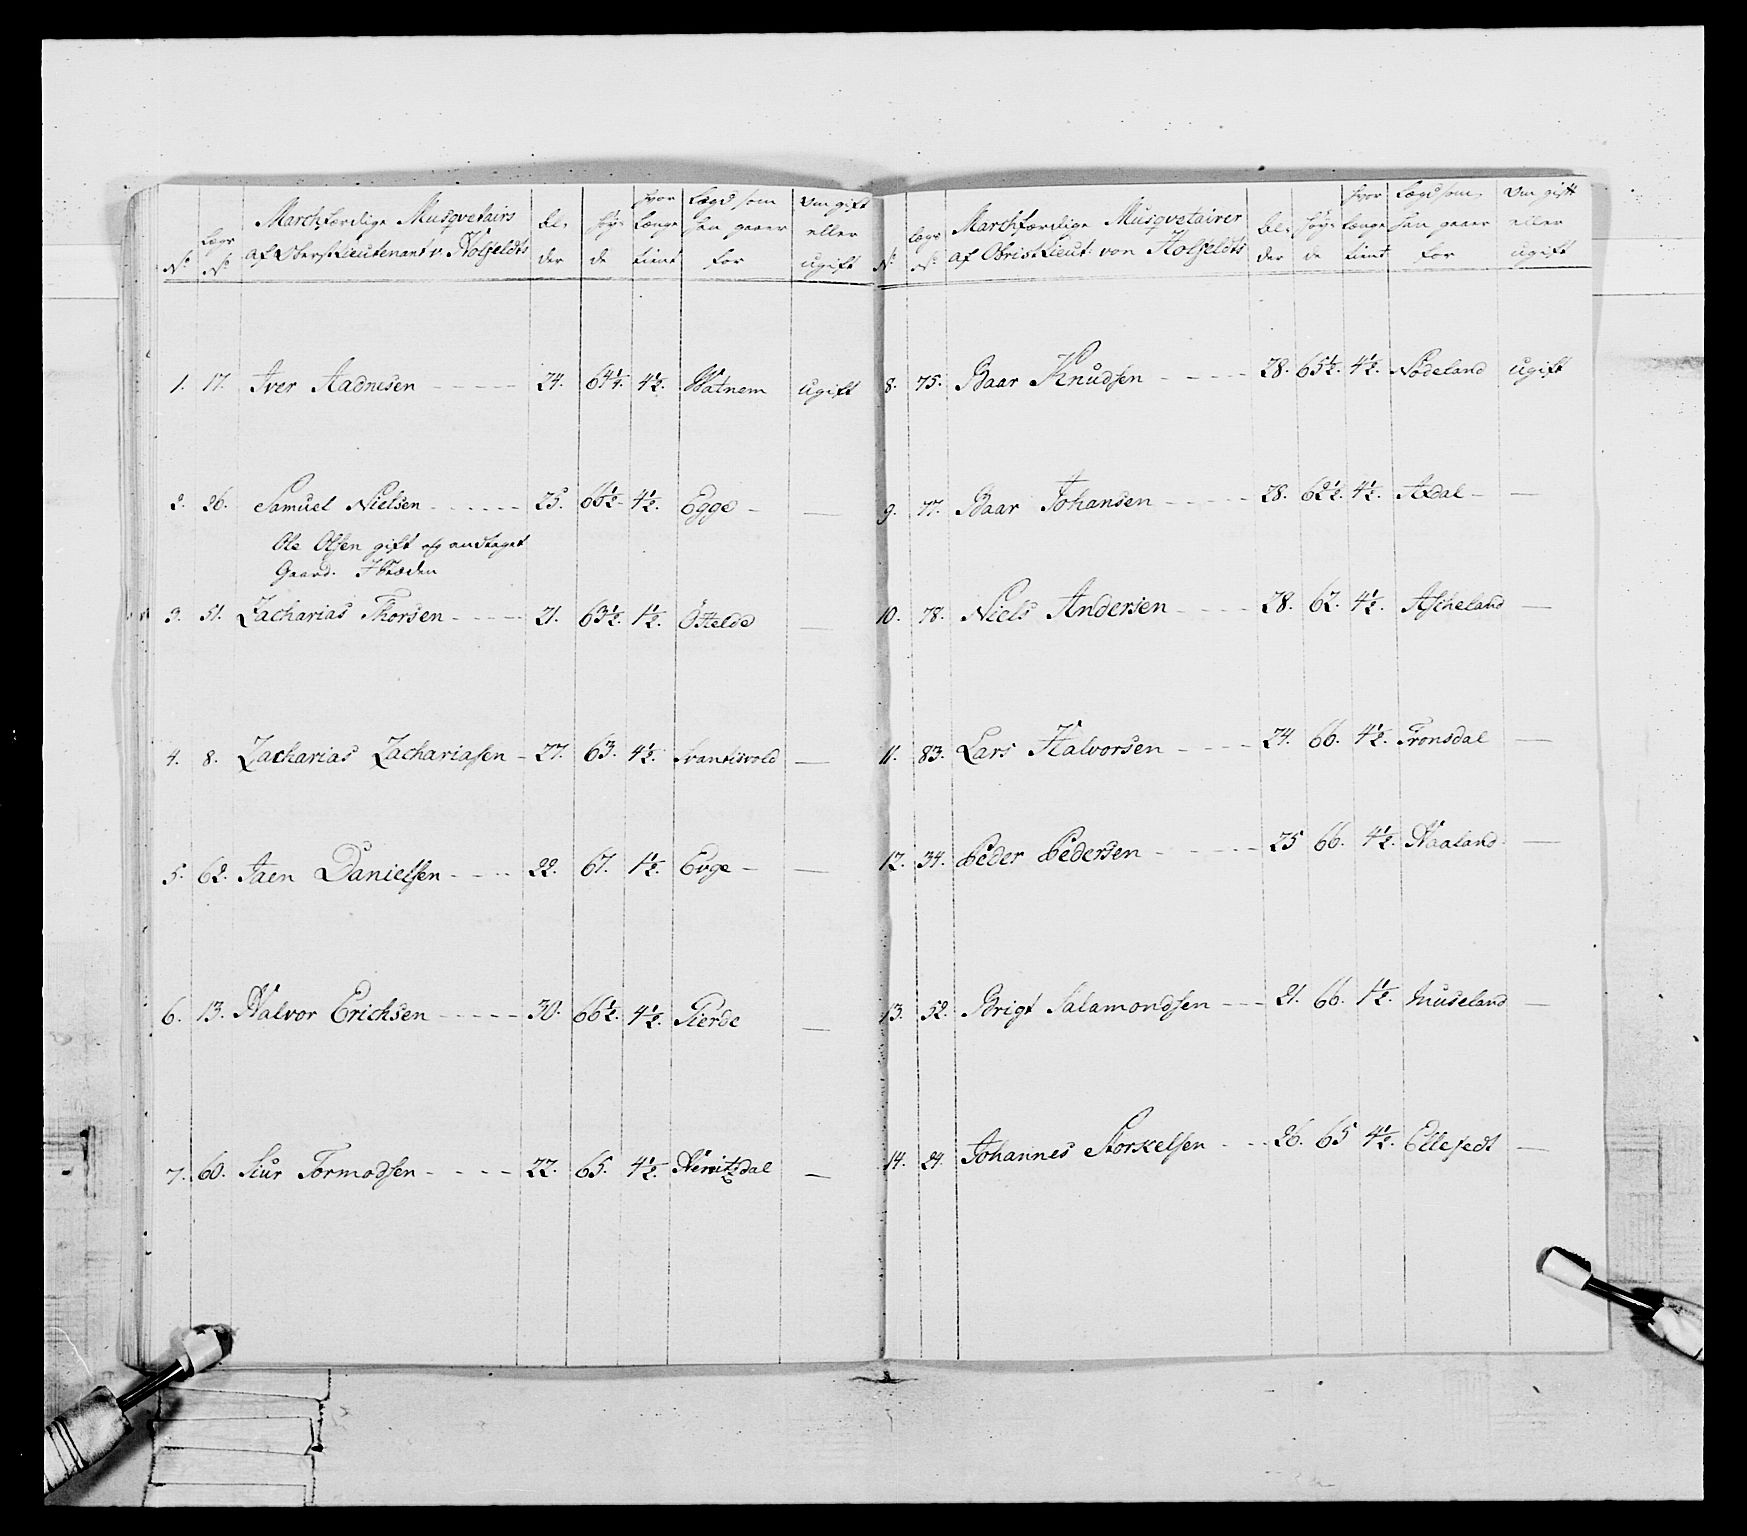 No. Lægs No. Marchfærdige Musqvetairs af Oberst Lieutenant v. Holfeldts Al- der Høy- de hvor længe tient Lægd som han staaer for Om gift eller ugift
1. 17. Iver Aadnesen 24. 64¼. 4½. Watnem ugift
2. 26. Samuel Nielsen 25. 66½ 4½. Egge —
Ole Olsen gift og andtaget
Gaard. I Stæden
3. 51. Zacharias Thorsen 21. 63½. 1½. —
4. 8. Zacharias Zachariasen 27. 63. 4½. Svantisvold —
5. 62. Taen Danielsen 22. 67. 1½. Evge —
6. 13. Halvor Erichsen 30. 66½. 4½. Tierde —
7. 60. Siur Tormodsen 22. 65. 4½. —
No. Lægs No. Marchfærdige Musqvetairer af Obrist Lieut: von Holfeldts Al- der Høy- de hvor længe tient Lægd som han staaer for Om gift eller ugift
8. 75. Baar Knudsen 28. 65½. 4½. Nødeland ugift
9. 77. Baar Johansen 28. 62½. 4½. Axdal —
10. 78. Niels Andersen 28. 62. 4½. Ascheland —
11. 83. Lars Halvorsen 24. 66. 4½. Tronsdal —
12. 34. Peder Pedersen 25 66. 4½. Haaland —
13. 52. Brigt Salamondsen 21. 66. 1½. Museland —
14. 24. Johannes Storkelsen 26. 65 4½. Ellefedt —